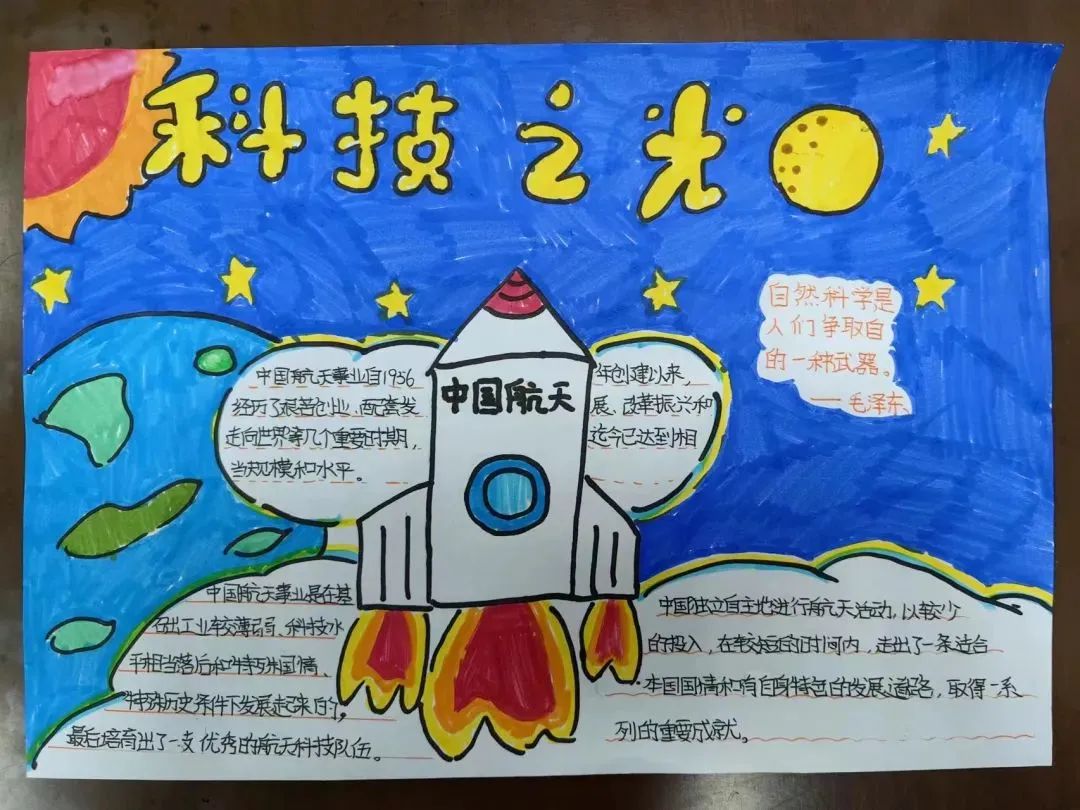 科技之光
自然科学是
人们争取自
的一种武器。
——毛泽东
中国航天
中国航天事业自1956年创建以来，
经历了艰苦创业、配套发展、改革振兴和
走向世界等几个重要时期，迄今已达到相
当规模和水平。
中国航天事业是在基
础工业较薄弱、科技水
平相当落后和特殊国情、
特殊历史条件下发展起来的，
最后培育出了一支优秀的航天科技队伍。
中国独立自主地进行航天活动，以较少
的投入，在较短的时间内，走出了一条适合
本国国情和有自身特色的发展道路，取得一系
列的重要成就。